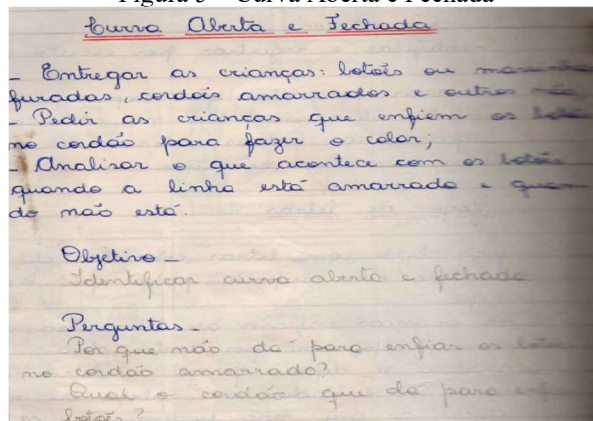 Figura 5 – Curva Aberta e Fechada
Curva Aberta e Fechada
- Entregar as crianças: botões ou
furadas, cordões amarrados e outros não
- Pedir as crianças que enfiem os botões
no cordão para fazer o colar;
- Analisar o que acontece com os botões
quando a linha está amarrada e quan-
do não está.
Objetivo -
Identificar curva aberta e fechada
Perguntas -
Por que não dá para enfiar os botões
no cordão amarrado?
Qual o cordão que dá para enfiar
os botões?